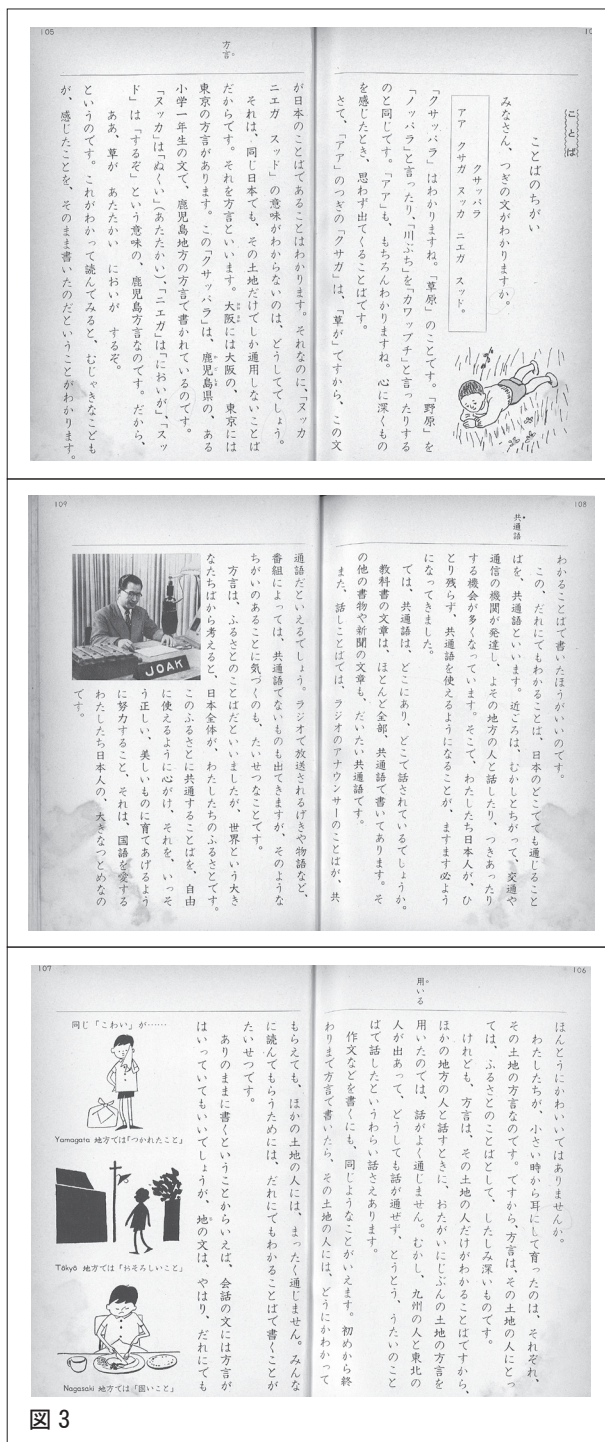 105
104
ことば
ことばのちがい
みなさん、つぎの文がわかりますか。
クサッパラ
アア クサガ ヌッカ ニエガ スッド。
「クサッパラ」はわかりますね。「草原」のことです。「野原」を
「ノッパラ」と言ったり、「川ぶち」を「カワップチ」と言ったりする
のと同じです。「アア」も、もちろんわかりますね。心に深くもの
を感じたとき、思わず出てくることばです。
さて、「アア」のつぎの「クサガ」は、「草が」ですから、この文
方言
が日本のことばであることはわかります。それなのに、「ヌッカ
ニエガ スッド」の意味がわからないのは、どうしてでしょう。
それは、同じ日本でも、その土地だけでしか通用しないことば
だからです。それを方言といいます。大阪には大阪の、東京には
東京の方言があります。この「クサッパラ」は、鹿児島県の、ある
小学一年生の文で、鹿児島地方の方言で書かれているのです。
「ヌッカ」は「ぬくい」(あたたかい)、「ニエガ」は「においが」、「スッ
ド」は「するぞ」という意味の、鹿児島方言なのです。だから、
ああ、草が あたたかい においが するぞ。
というのです。これがわかって読んでみると、むじゃきなこども
が、感じたことを、そのまま書いたのだということがわかります。
109
108
共通語
わかることばで書いたほうがいいのです。
この、だれにでもわかることば、日本のどこででも通じること
ばを、共通語といいます。近ごろは、むかしとちがって、交通や
通信の機関が発達し、よその地方の人と話したり、つきあったり
する機会が多くなっています。そこで、わたしたち日本人が、ひ
とり残らず、共通語を使えるようになることが、ますます必よう
になってきました。
では、共通語は、どこにあり、どこで話されているでしょうか。
教科書の文章は、ほとんど全部、共通語で書いてあります。そ
の他の書物や新聞の文章も、だいたい共通語です。
また、話しことばでは、ラジオのアナウンサーのことばが、共
通語だといえるでしょう。ラジオで放送されるげきや物語など、
番組によっては、共通語でないものも出てきますが、そのような
ちがいのあることに気づくのも、たいせつなことです。
方言は、ふるさとのことばだといいましたが、世界という大き
なたちばから考えると、日本全体が、わたしたちのふるさとです。
このふるさとに共通することばを、自由
に使えるように心がけ、それを、いっそ
う正しい、美しいものに育てあげるよう
に努力すること、それは、国語を愛する
わたしたち日本人の、大きなつとめなの
です。
JOAK
107
106
用いる
ほんとうにかわいいではありませんか。
わたしたちが、小さい時から耳にして育ったのは、それぞれ、
その土地の方言なのです。ですから、方言は、その土地の人にとっ
ては、ふるさとのことばとして、したしみ深いものです。
けれども、方言は、その土地の人だけがわかることばですから、
ほかの地方の人と話すときに、おたがいにじぶんの土地の方言を
用いたのでは、話がよく通じません。むかし、九州の人と東北の
人が出あって、どうしても話が通ぜず、とうとう、うたいのこと
ばで話したというわらい話さえあります。
作文などを書くにも、同じようなことがいえます。初めから終
わりまで方言で書いたら、その土地の人には、どうにかわかって
もらえても、ほかの土地の人には、まったく通じません。みんな
に読んでもらうためには、だれにでもわかることばで書くことが
たいせつです。
ありのままに書くということからいえば、会話の文には方言が
はいっていてもいいでしょうが、地の文は、やはり、だれにでも
同じ「こわい」が……
Yamagata 地方では『つかれたこと』
Tōkyō 地方では『おそろしいこと』
Nagasaki 地方では『固いこと』
図 3